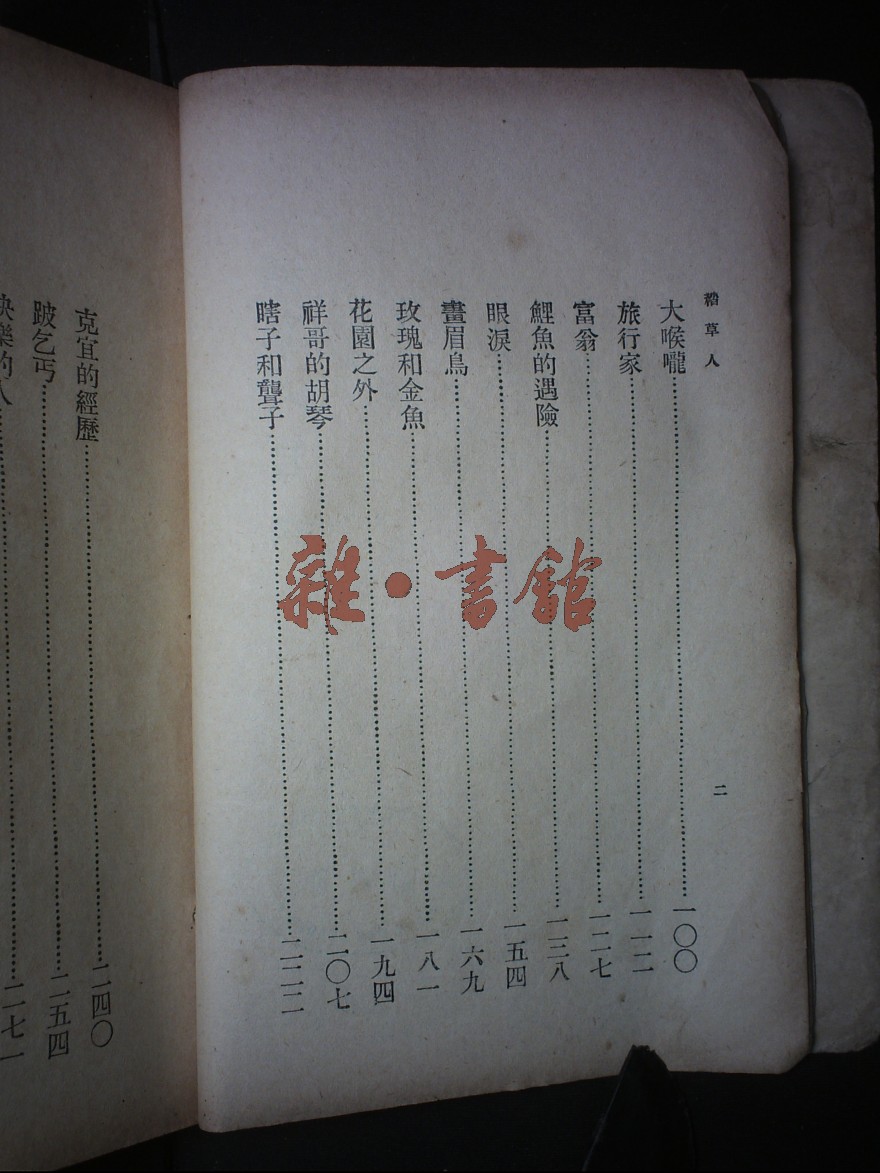 稻草人
大喉嚨……一〇〇
旅行家……一一二
富翁……一二七
鯉魚的遇險……一三八
眼淚……一五四
畫眉鳥……一六九
玫瑰和金魚……一八一
花園之外……一九四
祥哥的胡琴……二〇七
瞎子和聾子……二二二
二
克宜的經歷……二四〇
跛乞丐……二五四
快樂的人……二七一
雜·書館